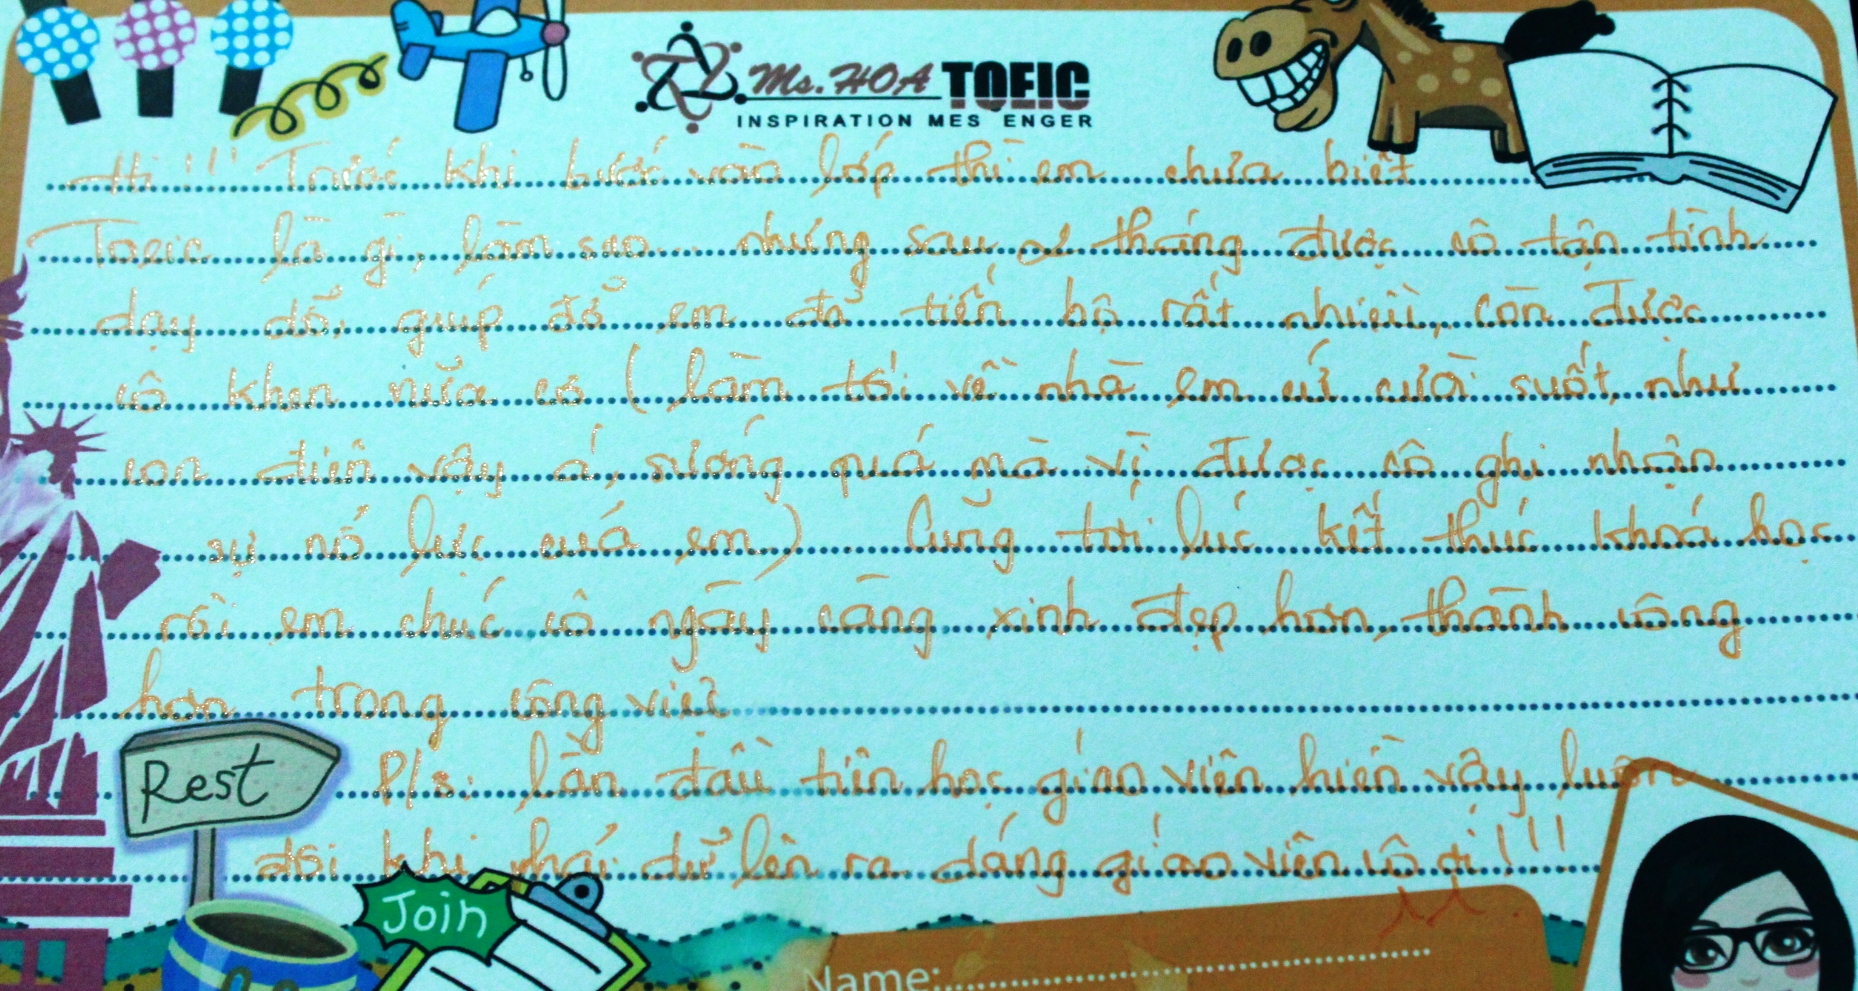 Ms. HOA TOEIC
INSPIRATION MES ENGER
Hi!!! Trước khi bước vào lớp thì em chưa biết
Toeic là gì, làm sao... nhưng sau 2 tháng được cô tận tình
dạy dỗ, giúp đỡ em đã tiến bộ rất nhiều, còn được
cô khen nữa cơ (làm tối về nhà em cứ cười suốt, như
con điên vậy á, sướng quá mà vì được cô ghi nhận
sự nỗ lực của em). Cũng tới lúc kết thúc khoá học
rồi em chúc cô ngày càng xinh đẹp hơn, thành công
hơn trong công việc
Rest
P/s: lần đầu tiên học giáo viên hiền vậy luôn
đôi khi phải dữ lên ra dáng giáo viên cô ơi!!!
Join
^^
Name: